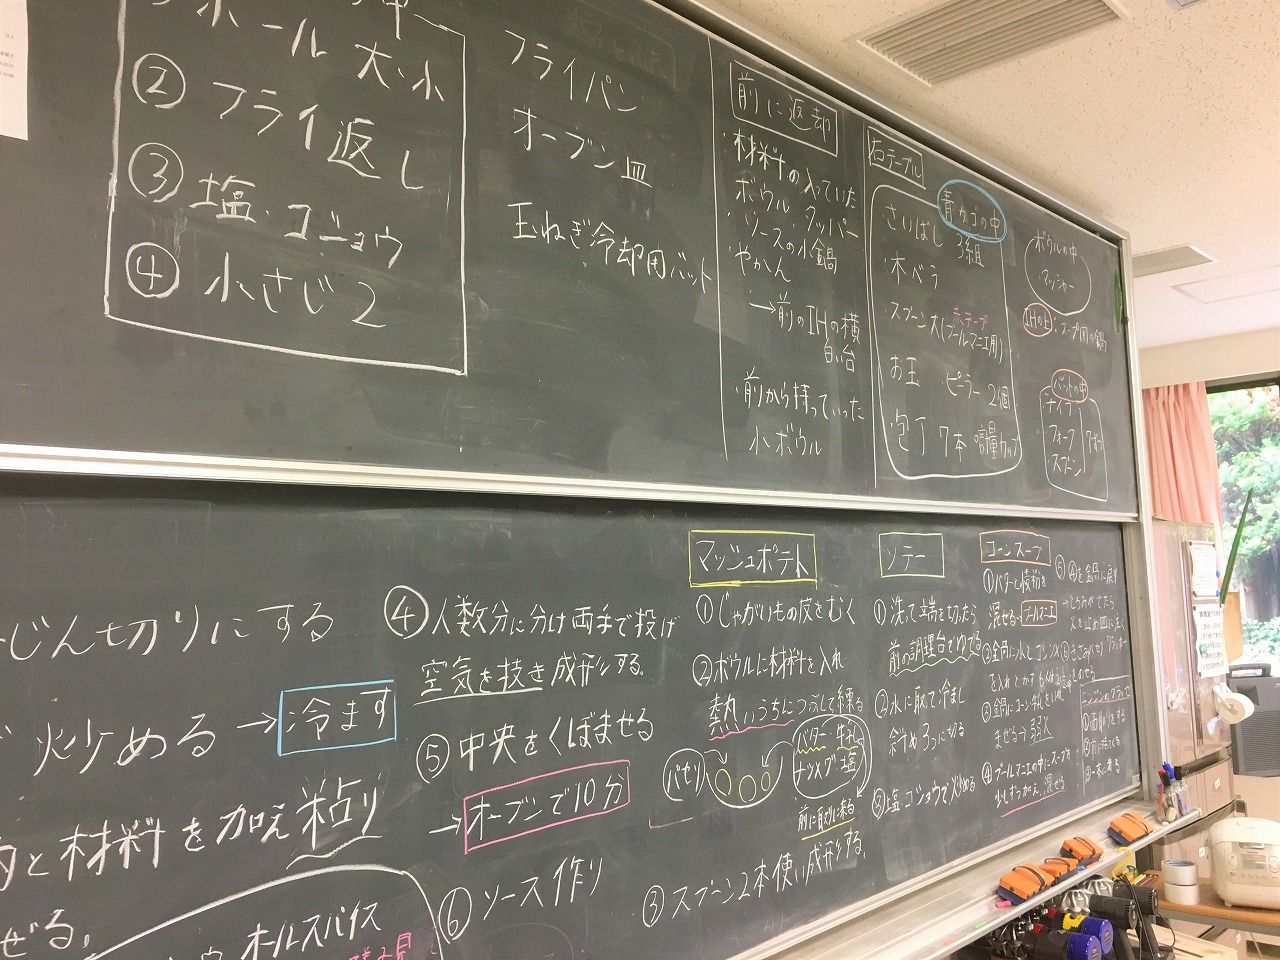 ボール 大・小
② フライ返し
③ 塩・コショウ
④ 小さじ2
フライパン
オーブン皿
玉ねぎ冷却用バット
前に返却
・材料の入っていた
ボウル・タッパー
・ソースの小鍋
・やかん
→前のIHの横
白い台
・前から持っていった
小ボウル
右テーブル
青カゴの中
さいばし 3組
・木ベラ
・スプーン大(ブールマニエ用)
赤テープ
お玉 ピーラー 2個
包丁 7本 計量カップ
ボウルの中
・マッシャー
IHの上・スープ用の鍋
バットの中
ナイフ
フォーク
スプーン
じん切りにする
炒める→冷ます
と材料を加え粘り
ぜる。
オールスパイス
④人数分に分け両手で投げ
空気を抜き成形する。
⑤中央をくぼませる
→オーブンで10分
⑥ソース作り
マッシュポテト
①じゃがいもの皮をむく
②ボウルに材料を入れ
熱いうちにつぶして練る
パセリ
バター 牛乳
ナツメグ 塩
前に取りに来る
③スプーン2本使い成形する。
ソテー
①洗って端を切ったら
前の調理台でゆでる
②水に取って冷まし
斜め3つに切る
③塩・コショウで炒める
コーンスープ
①バターと薄力粉を
混ぜる→ブールマニエ
②鍋に水とコンソメ
を入れとかす
③鍋にコーン 牛乳を入れ
まぜる→弱火
④ブールマニエの中にスープを
少しずつ加え、混ぜる
⑤④を鍋に戻す
→とろみがでたら
火を止め皿に注ぐ
①面取りをする